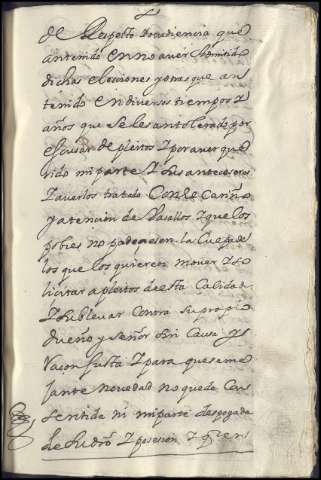 de Respeto Vobediencia que
an tenido en no aver admitido
dichas elecciones y otras que an
tenido en diversos tiempos y
años que se les an tolerado por
escusar de pleitos y por aver que
rido mi parte y sus antecesores
tratado con el cariño
y atencion de Vasallos y que los
pobres no padeciesen la culpa de
los que los quieren mover y so
licitar a pleitos de esta calidad
y sublevar contra su propio
dueño y señor sin causa y
Raçon justa y para que seme
jante novedad no quede con
sentida ni mi parte despojada
de su dro y posesion y